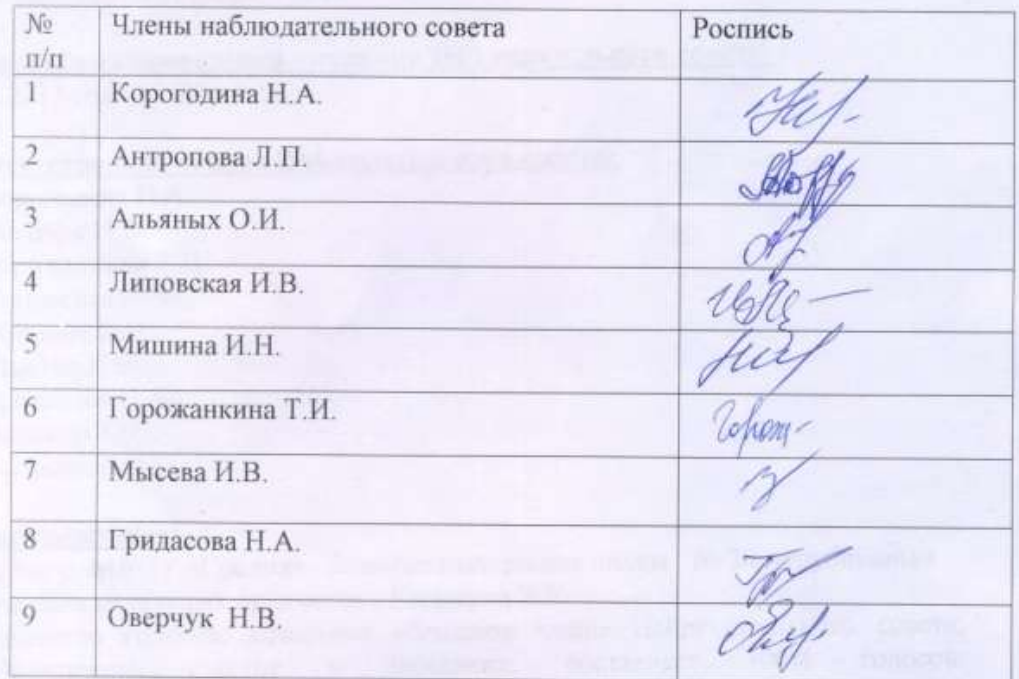 № п/п Члены наблюдательного совета Роспись
1 Корогодина Н.А.
2 Антропова Л.П.
3 Альяных О.И.
4 Липовская И.В.
5 Мишина И.Н.
6 Горожанкина Т.И.
7 Мысева И.В.
8 Гридасова Н.А.
9 Оверчук Н.В.